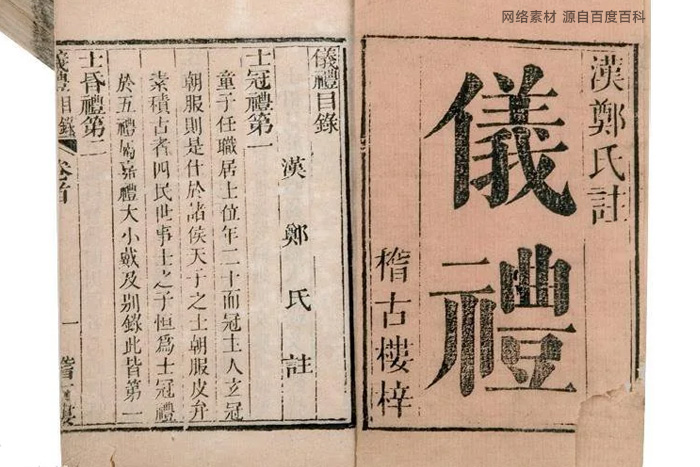 网络素材 源自百度百科
漢鄭氏註
儀禮
稽古樓梓
儀禮目錄
漢鄭氏註
士冠禮第一
童子任職居士位年二十而冠主人玄冠
朝服則是仕於諸侯天子之士朝服皮弁
素積古者四民世事士之子恒為士冠禮
於五禮屬嘉禮大小戴及別錄此皆第一
士昏禮第二
儀禮目錄
卷首
一
稽古樓